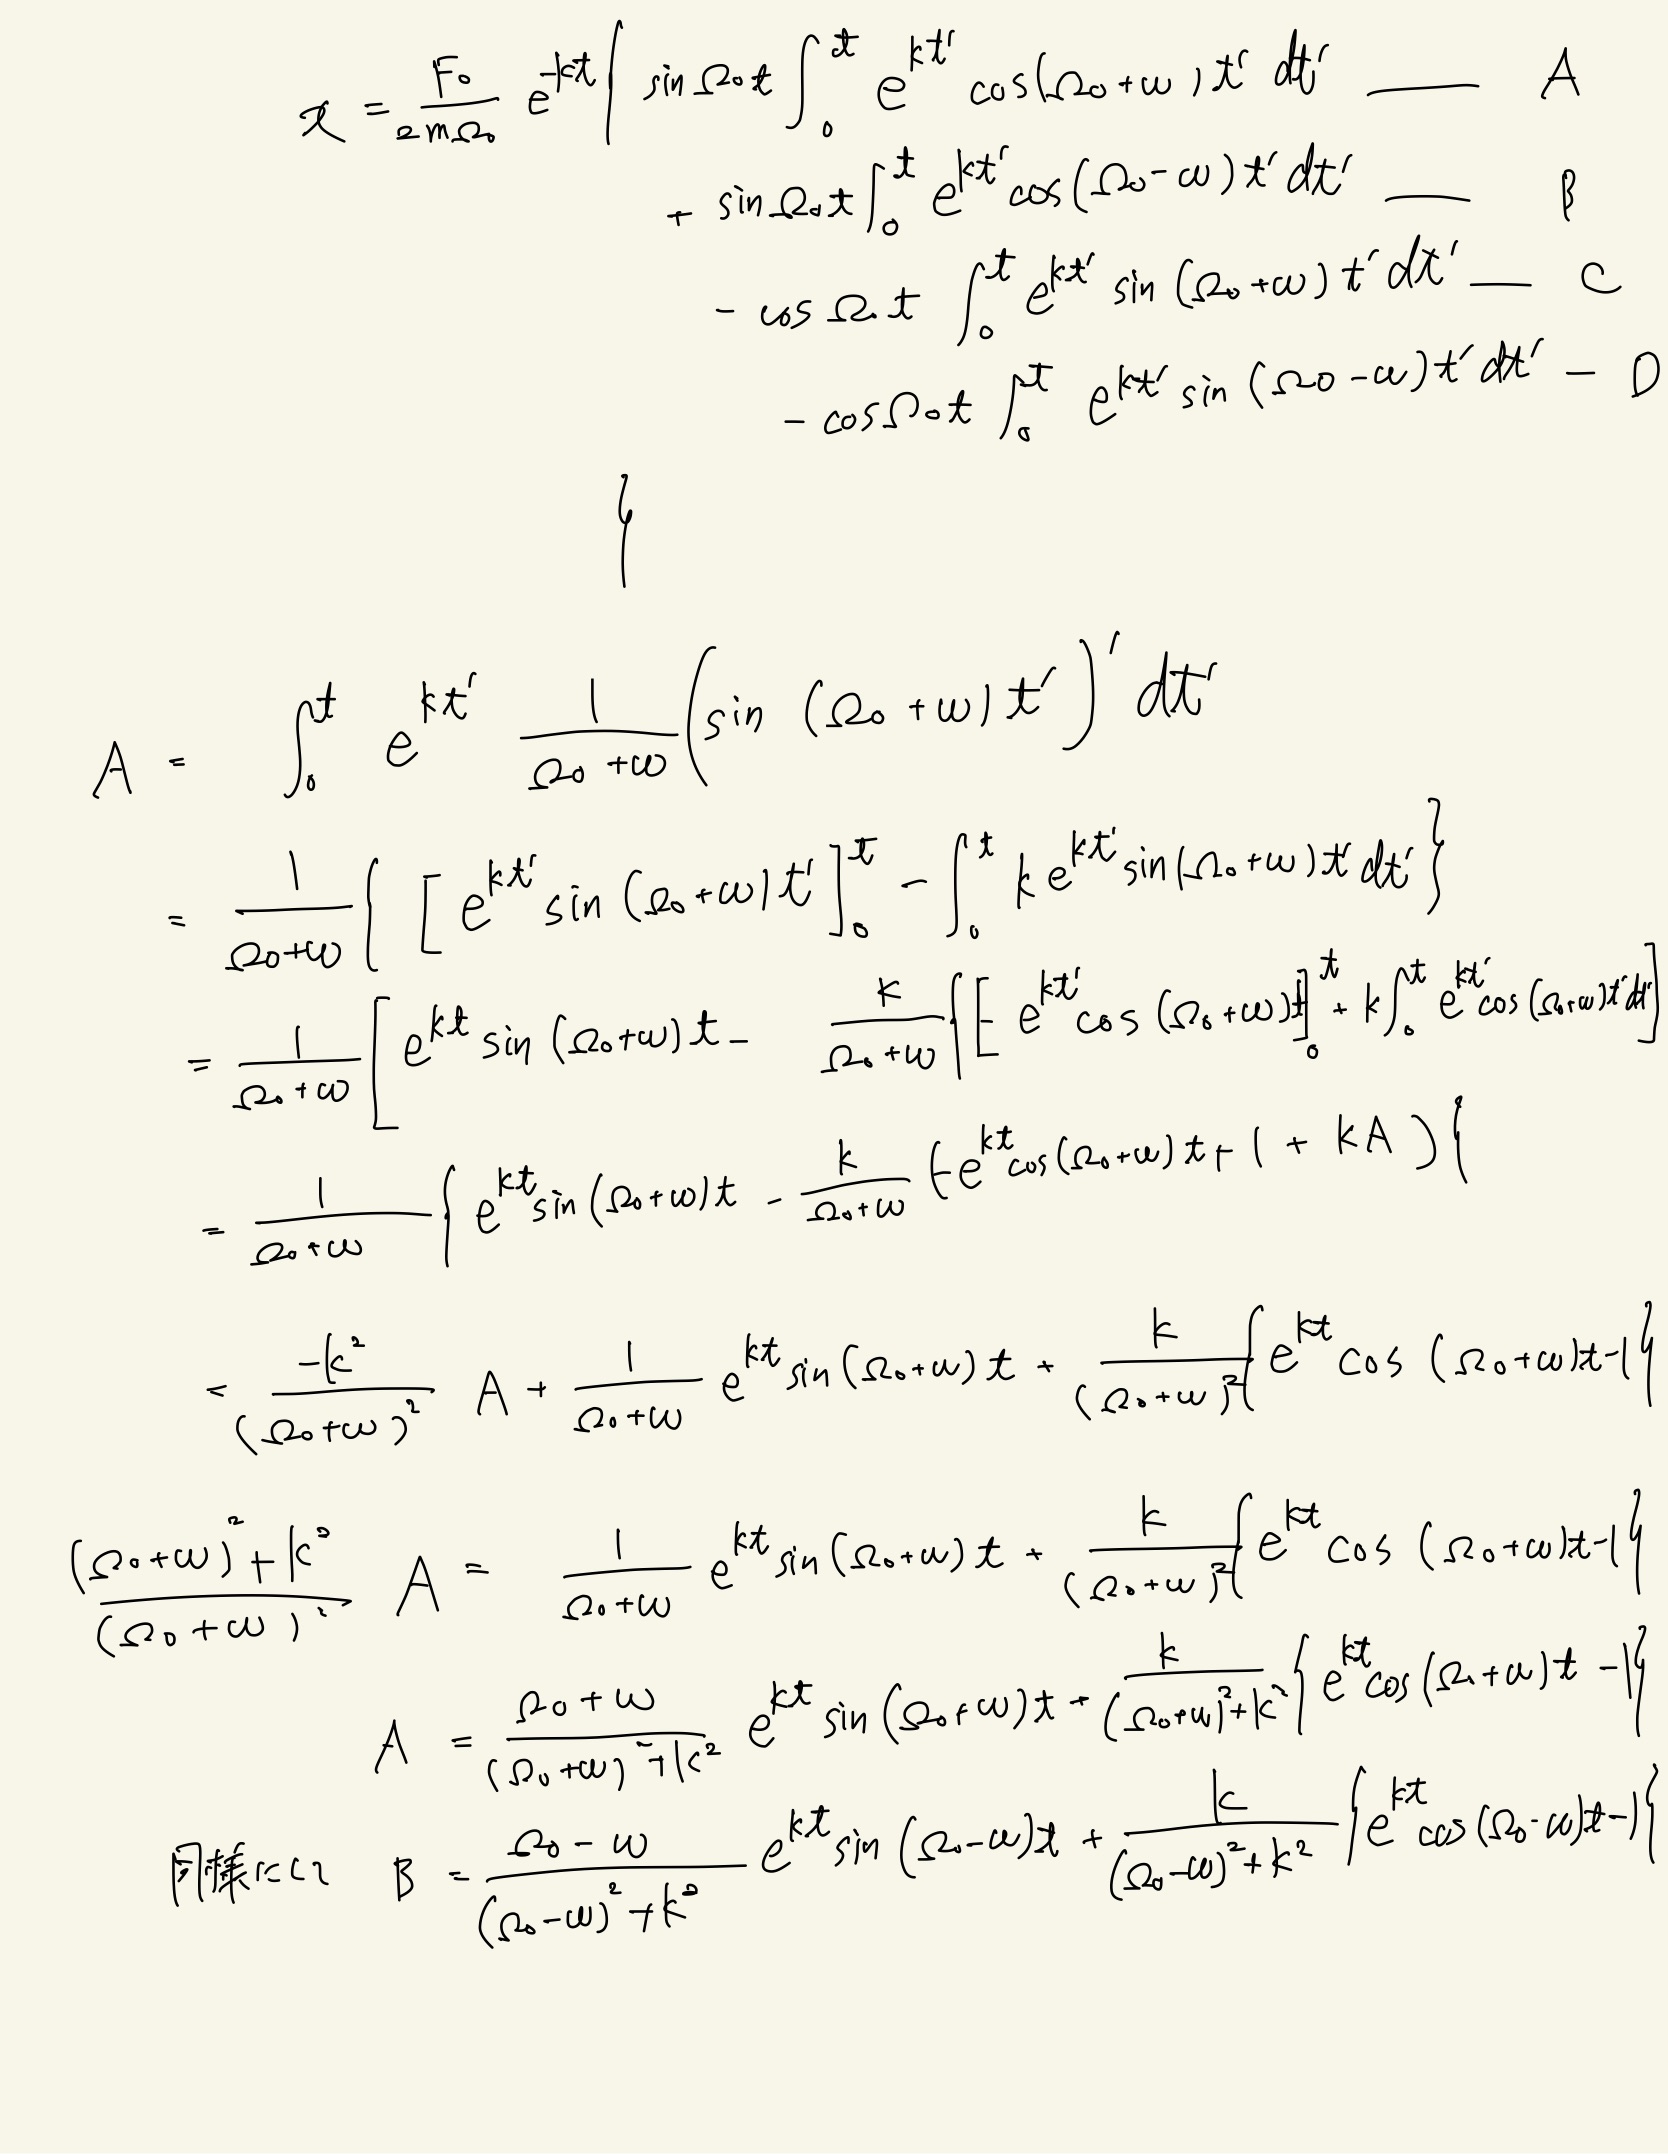 x = F₀/(2mΩ₀) e^{-kt} { sin Ω₀t ∫₀^t e^{kt'} cos(Ω₀+ω)t' dt' — A
+ sin Ω₀t ∫₀^t e^{kt'} cos(Ω₀-ω)t' dt' — B
- cos Ω₀t ∫₀^t e^{kt'} sin(Ω₀+ω)t' dt' — C
- cos Ω₀t ∫₀^t e^{kt'} sin(Ω₀-ω)t' dt' — D
}
A = ∫₀^t e^{kt'} 1/(Ω₀+ω) (sin(Ω₀+ω)t')' dt'
= 1/(Ω₀+ω) { [e^{kt'} sin(Ω₀+ω)t']₀^t - ∫₀^t k e^{kt'} sin(Ω₀+ω)t' dt' }
= 1/(Ω₀+ω) [ e^{kt} sin(Ω₀+ω)t - k/(Ω₀+ω) { [-e^{kt'} cos(Ω₀+ω)t']₀^t + k∫₀^t e^{kt'} cos(Ω₀+ω)t' dt' ]
= 1/(Ω₀+ω) { e^{kt} sin(Ω₀+ω)t - k/(Ω₀+ω) (-e^{kt} cos(Ω₀+ω)t + 1 + kA) }
= -k²/(Ω₀+ω)² A + 1/(Ω₀+ω) e^{kt} sin(Ω₀+ω)t + k/(Ω₀+ω)² { e^{kt} cos(Ω₀+ω)t - 1 }
((Ω₀+ω)²+k²)/(Ω₀+ω)² A = 1/(Ω₀+ω) e^{kt} sin(Ω₀+ω)t + k/(Ω₀+ω)² { e^{kt} cos(Ω₀+ω)t - 1 }
A = (Ω₀+ω)/((Ω₀+ω)²+k²) e^{kt} sin(Ω₀+ω)t + k/((Ω₀+ω)²+k²) { e^{kt} cos(Ω₀+ω)t - 1 }
同様にして B = (Ω₀-ω)/((Ω₀-ω)²+k²) e^{kt} sin(Ω₀-ω)t + k/((Ω₀-ω)²+k²) { e^{kt} cos(Ω₀-ω)t - 1 }